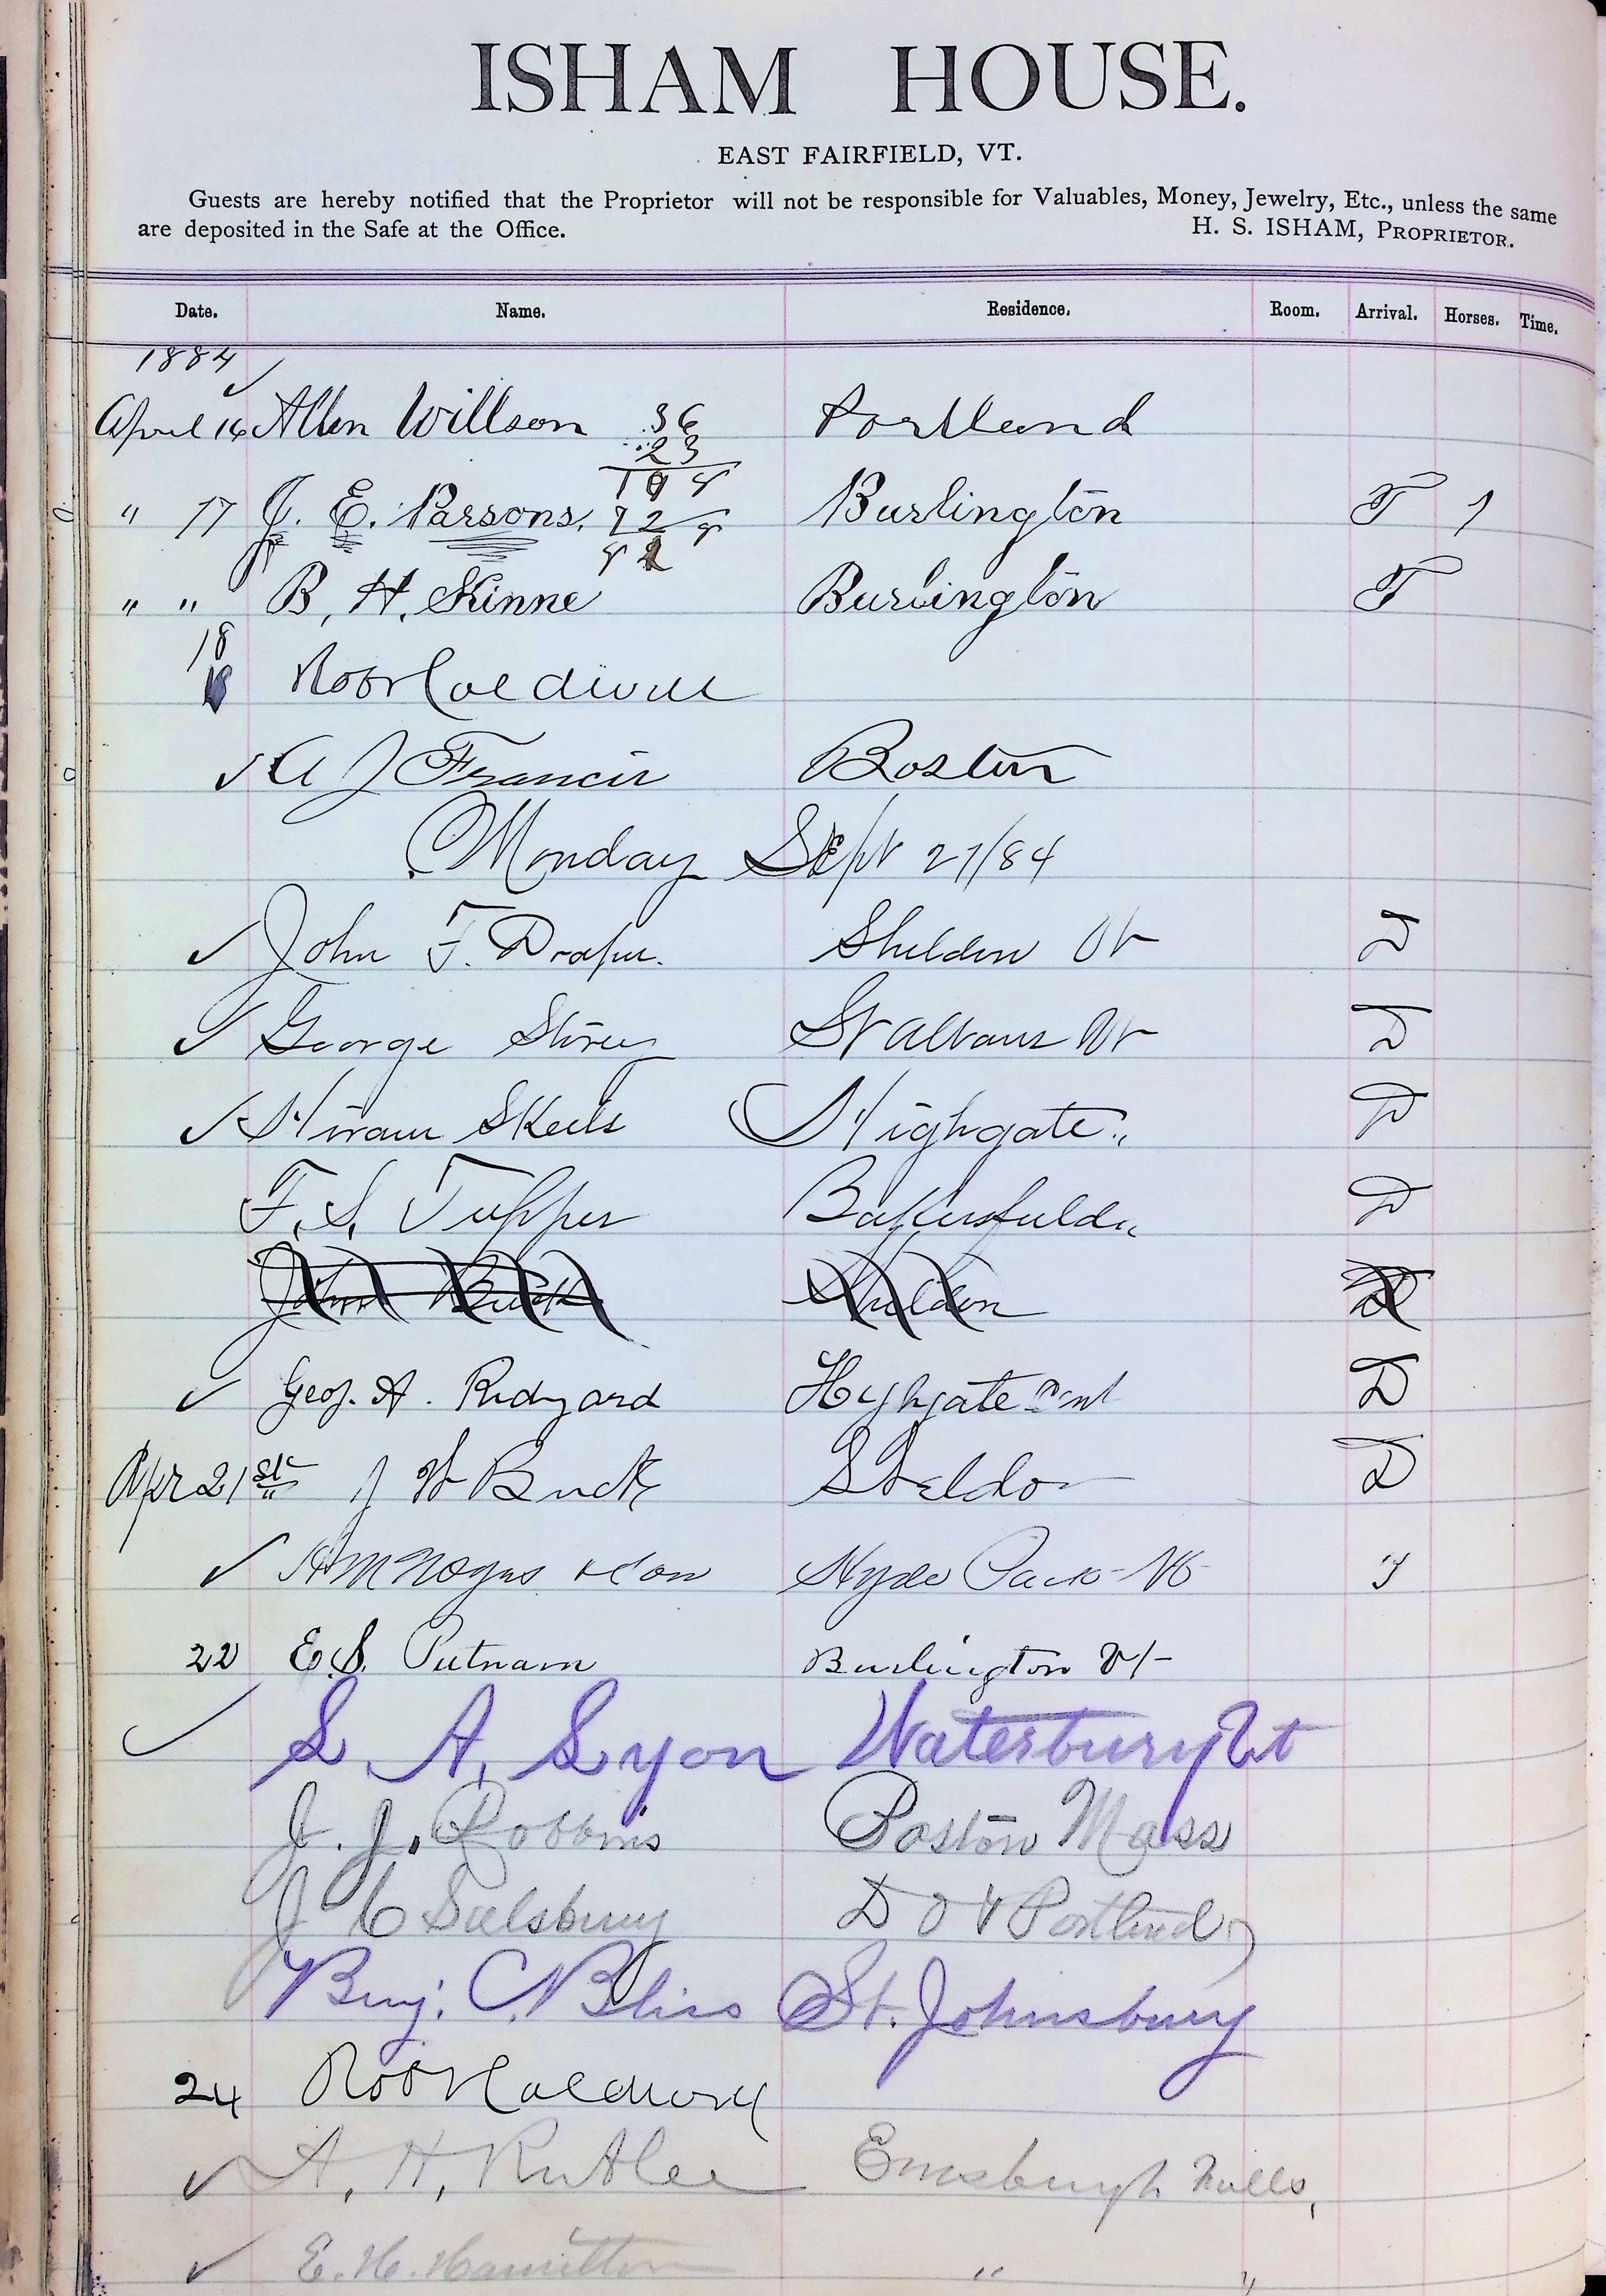 ISHAM HOUSE.
EAST FAIRFIELD, VT.
Guests are hereby notified that the Proprietor will not be responsible for Valuables, Money, Jewelry, Etc., unless the same
are deposited in the Safe at the Office. H. S. ISHAM, PROPRIETOR.
Date. Name. Residence. Room. Arrival. Horses. Time.
1884
April 16 Allen Willson 36 Portland
23
" 17 J. E. Parsons. Burlington T 1
" " B. H. Kinne Burlington T
18
Robt Caldwell
A J Francis Boston
Monday Sept 27/84
John F. Draper. Sheldon Vt D
George Story St Albans Vt D
Hiram Skeels Highgate D
F. S. Tupper Bakersfield D
John Buck Sheldon D
Geo. A. Rudyard Hyhgate Cent D
Apr 21st J W Buck Sheldon D
H M Noyes & Son Hyde Park Vt
22 E. S. Putnam Burlington Vt
S. A. Lyon Waterbury Vt
J. J. Robbins Boston Mass
J C Salsbury D O & Portland
Benj. C. Bliss St. Johnsbury
24 Robt Caldwell
A. H. Falls,
E. H. Hamilton " "